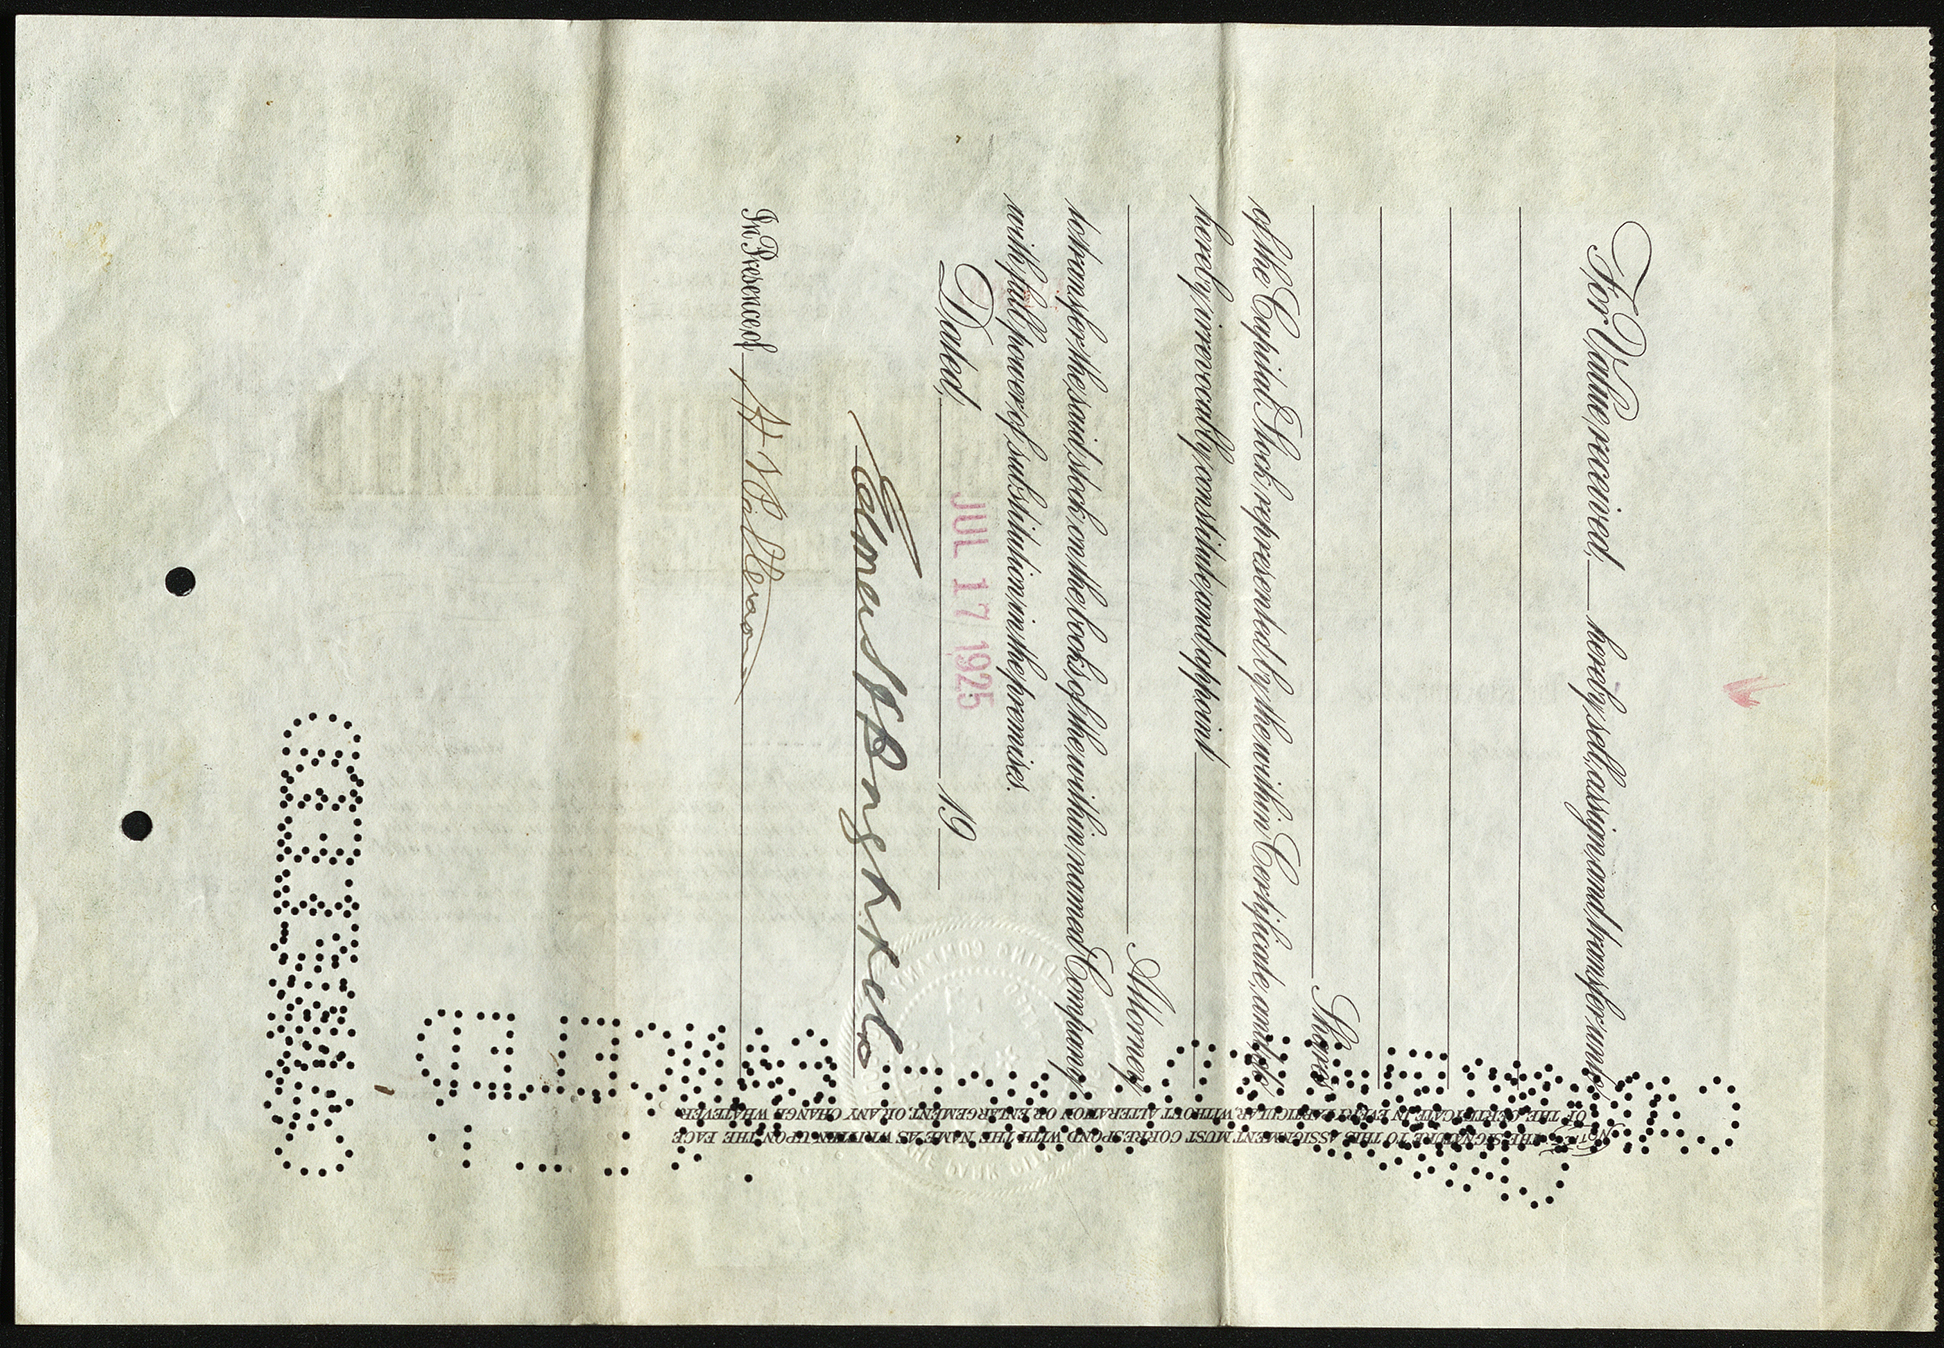 For Value received, hereby sell, assign and transfer unto
Shares
of the Capital Stock represented by the within Certificate, and do
hereby irrevocably constitute and appoint
Attorney
to transfer the said stock on the books of the within named Company
with full power of substitution in the premises.
Dated, JUL 17 1925 19
In Presence of
THE SIGNATURE TO THIS ASSIGNMENT MUST CORRESPOND WITH THE NAME AS WRITTEN UPON THE FACE
OF THE CERTIFICATE IN EVERY PARTICULAR WITHOUT ALTERATION OR ENLARGEMENT, OR ANY CHANGE WHATEVER
CANCELLED